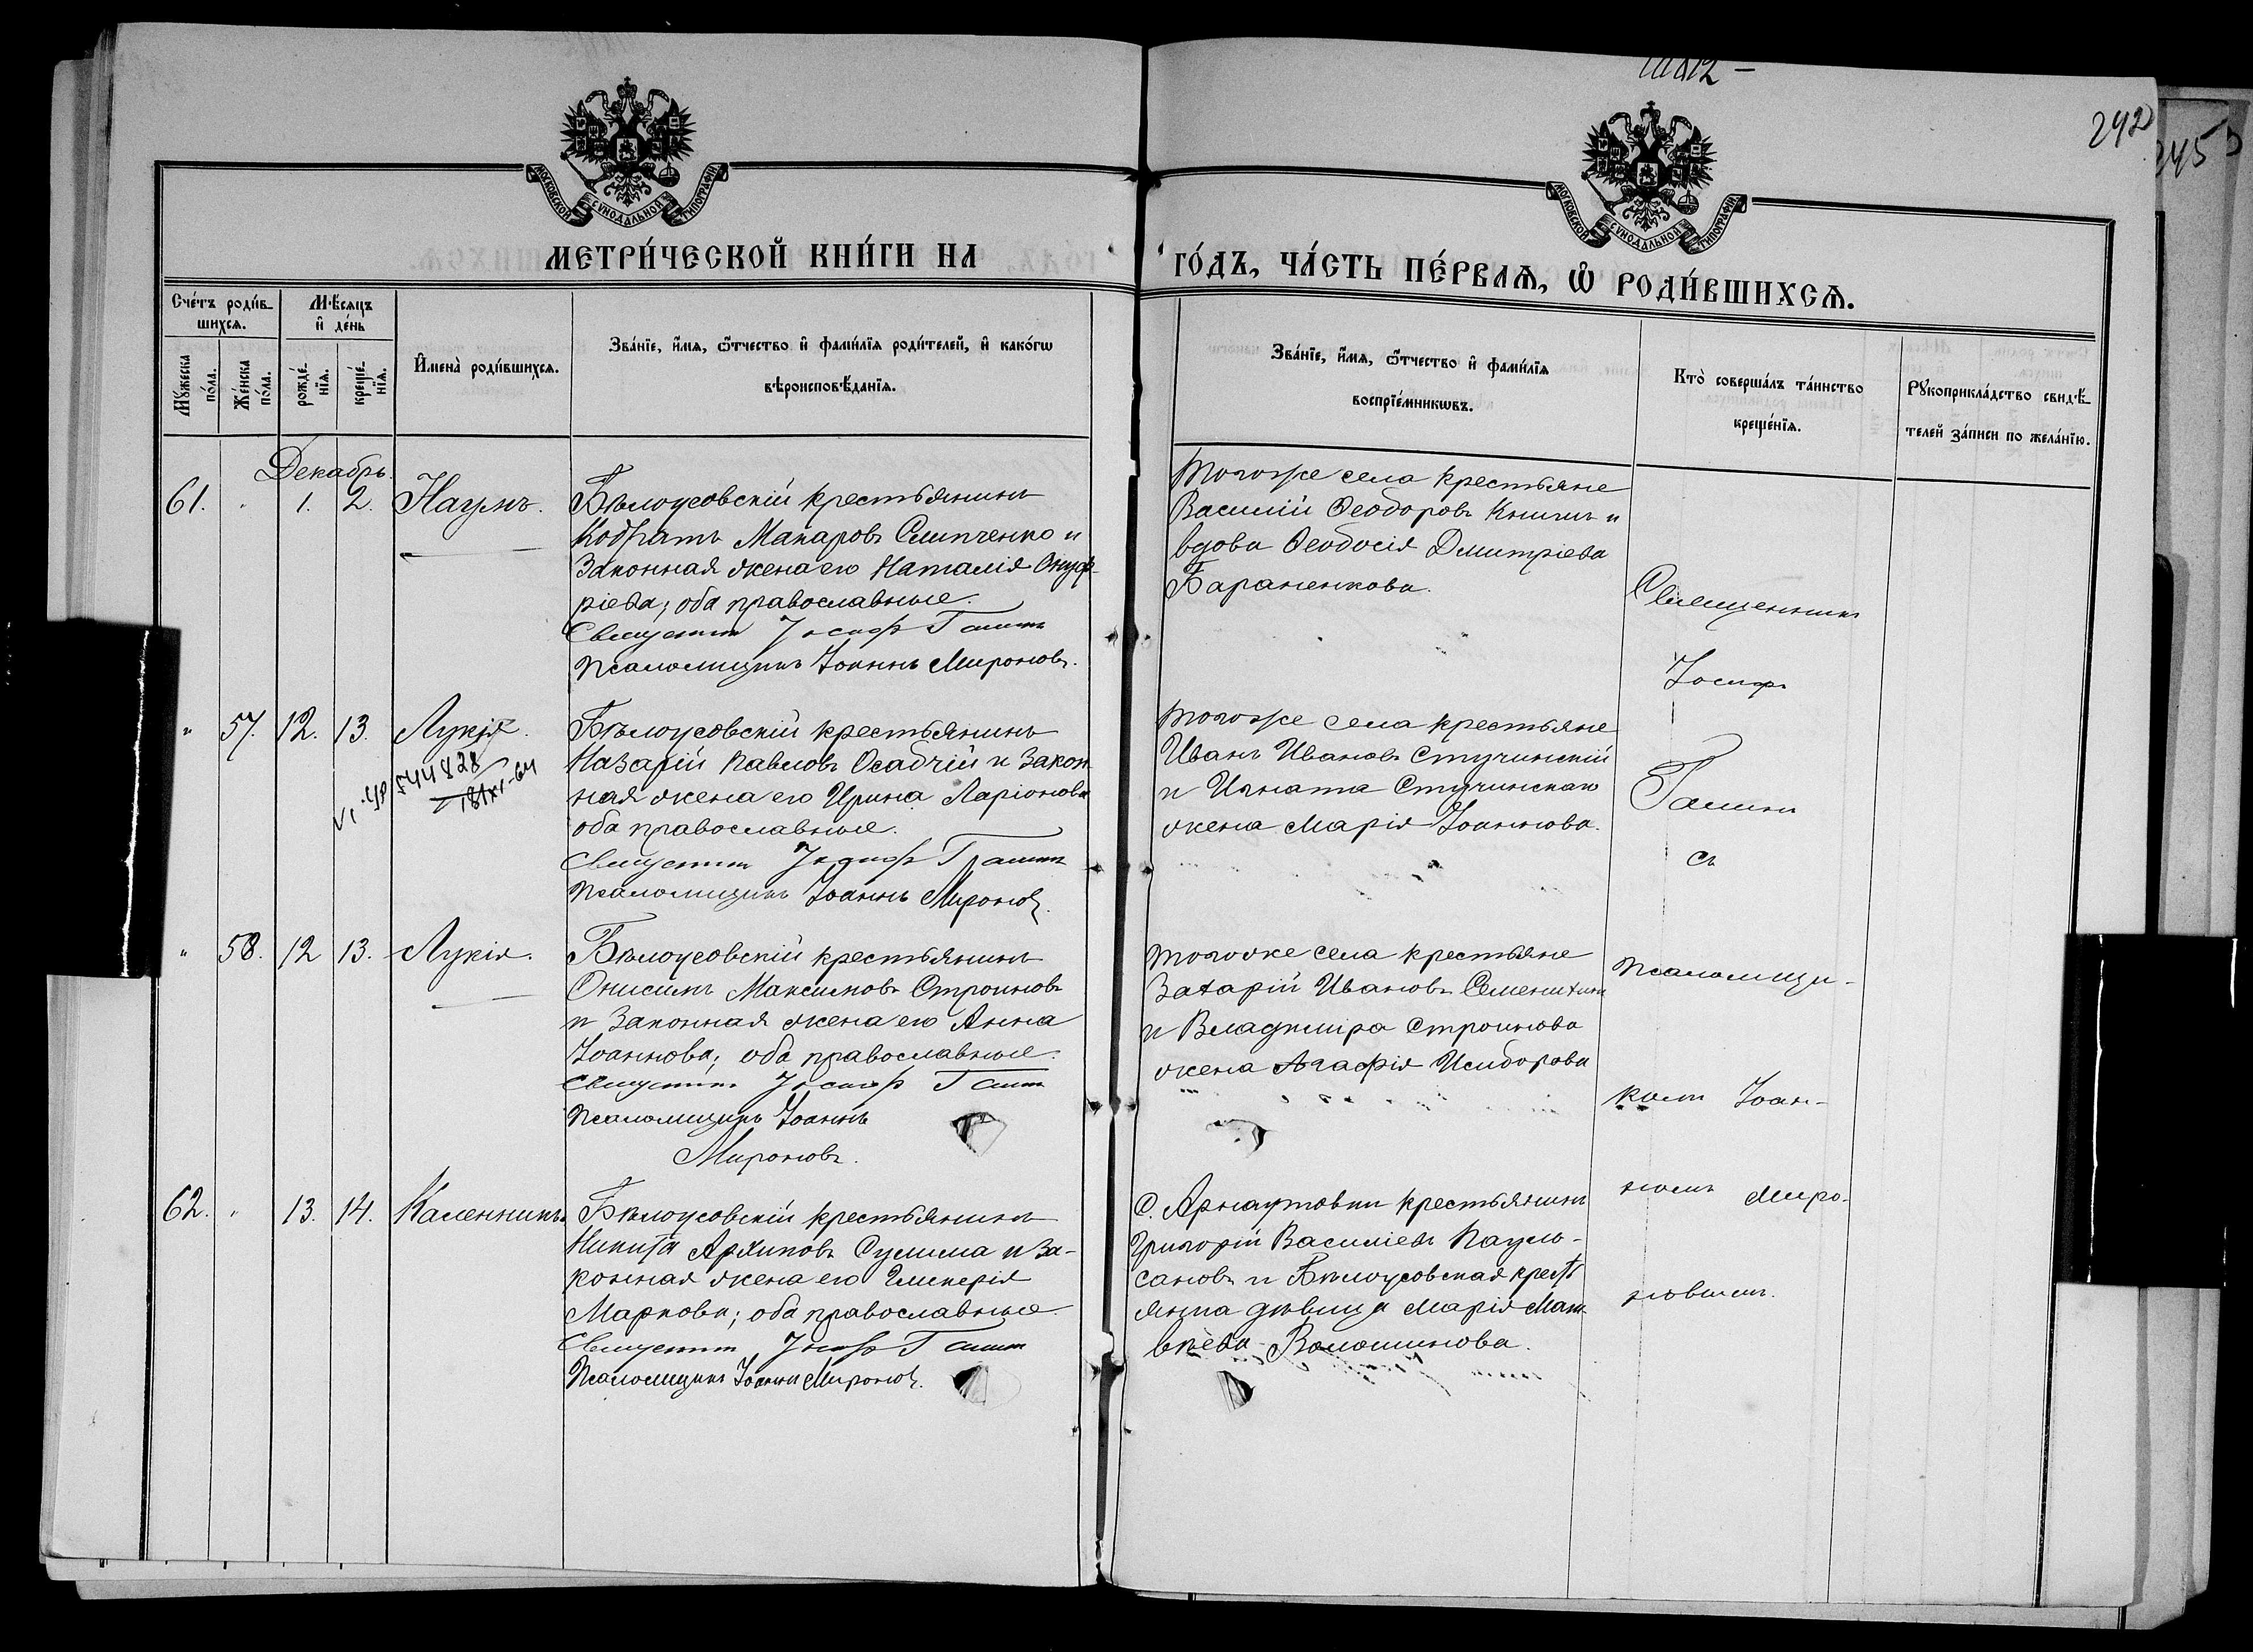 242
МОСКОВСКОЙ СѴНОДАЛЬНОЙ ТИПОГРАФІИ
МОСКОВСКОЙ СѴНОДАЛЬНОЙ ТИПОГРАФІИ
МЕТРИ́ЧЕСКОЙ КНИ́ГИ НА
ГО́ДЪ, ЧА́СТЬ ПЕ́РВАѦ, Ѡ҆ РОДИ́ВШИХСѦ.
Сче́тъ роди́в-
шихсѧ.
Мꙋжеска по́ла.
Же́нска по́ла.
Мѣ́сяцъ
и҆ де́нь
рожде́-
нїѧ.
креще́-
нїѧ.
И҆мена̀ роди́вшихсѧ.
Зва́нїе, и҆́мѧ, ѻ҆́тчество и҆ фами́лїѧ роди́телей, и҆ како́гѡ
вѣроисповѣ́данїѧ.
Зва́нїе, и҆́мѧ, ѻ҆́тчество и҆ фами́лїѧ
воспрїе́мникѡвъ.
Кто̀ соверша́лъ та́инство
креще́нїѧ.
Рꙋкоприкла́дство свидѣ́-
телей за́писи по жела́нїю.
Декабрь.
61. " 1. 2. Наумъ.
Бѣлоусовскій крестьянинъ
Кодратъ Макаровъ Слипченко и
законная жена его Наталія Онуф-
ріева; оба православные.
Священникъ Іосифъ Галинъ
Псаломщикъ Іоаннъ Мироновъ.
Тогоже села крестьяне
Василій Ѳеодоровъ и
вдова Ѳеодосія Дмитріева
Бараненкова.
" 57. 12. 13. Лукія.
544828
Бѣлоусовскій крестьянинъ
Назарій Павловъ Осадчій и закон-
ная жена его Ирина Ларіонова
оба православные.
Священникъ Іосифъ Галинъ
Псаломщикъ Іоаннъ Мироновъ.
Тогоже села крестьяне
Иванъ Ивановъ Стучинскій
и Игната Стучинскаго
жена Марія Іоаннова.
" 58. 12 13. Лукія.
Бѣлоусовскій крестьянинъ
Онисимъ Максимовъ Строиновъ
и законная жена его Анна
Іоаннова; оба православные.
Священникъ Іосифъ Галинъ
Псаломщикъ Іоаннъ
Мироновъ.
Тогоже села крестьяне
Захарій Ивановъ Семенихинъ
и Владимира Строинова
жена Агафія Исидорова
62. " 13. 14. Каленникъ.
Бѣлоусовскій крестьянинъ
Никита Архиповъ Сулима и за-
конная жена его Гликерія
Маркова; оба православные
Священникъ Іосифъ Галинъ
Псаломщикъ Іоаннъ Мироновъ.
с. Арнаутовки крестьянинъ
Григорій Василіевъ
и Бѣлоусовская крестъ
янка дѣвица Марія Мат-
вѣева Волошинова.
Священникъ
Іосифъ
Галинъ
съ
псаломщи-
комъ Іоан-
номъ Миро-
новымъ.